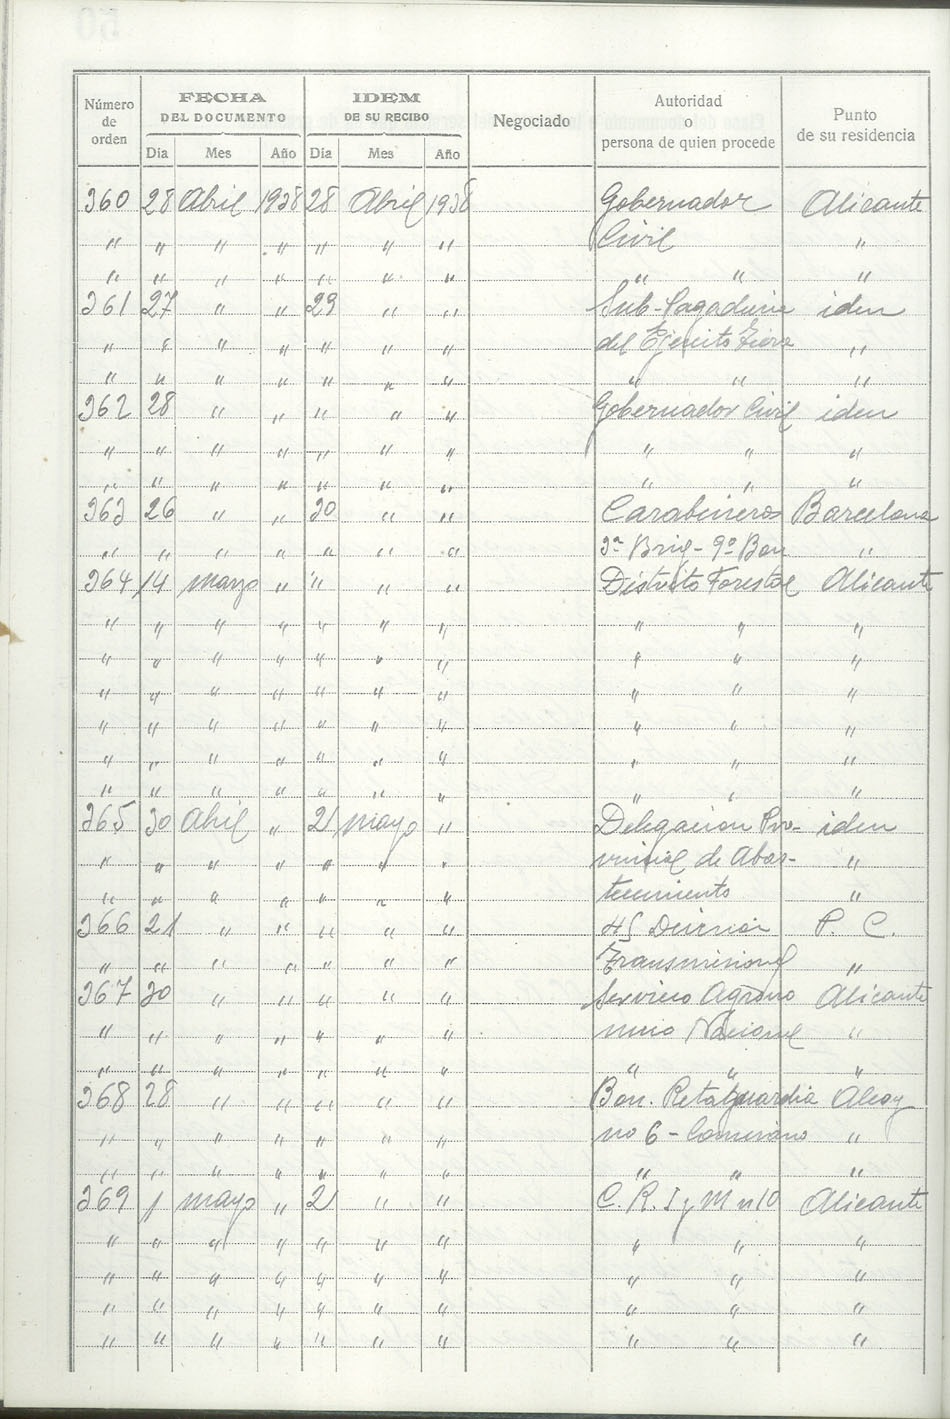 Número de orden | FECHA DEL DOCUMENTO | IDEM DE SU RECIBO | Negociado | Autoridad o persona de quien procede | Punto de su residencia
Dia | Mes | Año | Dia | Mes | Año
360 28 Abril 1938 28 Abril 1938 Gobernador Alicante
" " " " " " " Civil "
" " " " " " " " " "
361 27 " " 29 " " Sub-Pagaduria iden
" " " " " " " del Ejercito "
" " " " " " " " " "
362 28 " " " " " Gobernador Civil iden
" " " " " " " " " "
" " " " " " " " " "
363 26 " " 30 " " Carabineros Barcelona
" " " " " " " 3ª Brig - 9º Bon "
364 14 marzo " " " " Distrito Forestal Alicante
" " " " " " " " " "
" " " " " " " " " "
" " " " " " " " " "
" " " " " " " " " "
" " " " " " " " " "
" " " " " " " " " "
365 30 Abril " 2 mayo " Delegacion Pro- iden
" " " " " " " vincial de Abas- "
" " " " " " " tecimiento "
366 21 " " " " " 45 Division P. C.
" " " " " " " "
367 30 " " " " " Servicio Agrono Alicante
" " " " " " " mico Nacional "
" " " " " " " " " "
368 28 " " " " " Bon. Retaguardia Alcoy
" " " " " " " no 6 - Comisario "
" " " " " " " " " "
369 1 mayo " 2 " " C. R. I y M nº 10 Alicante
" " " " " " " " " "
" " " " " " " " " "
" " " " " " " " " "
" " " " " " " " " "